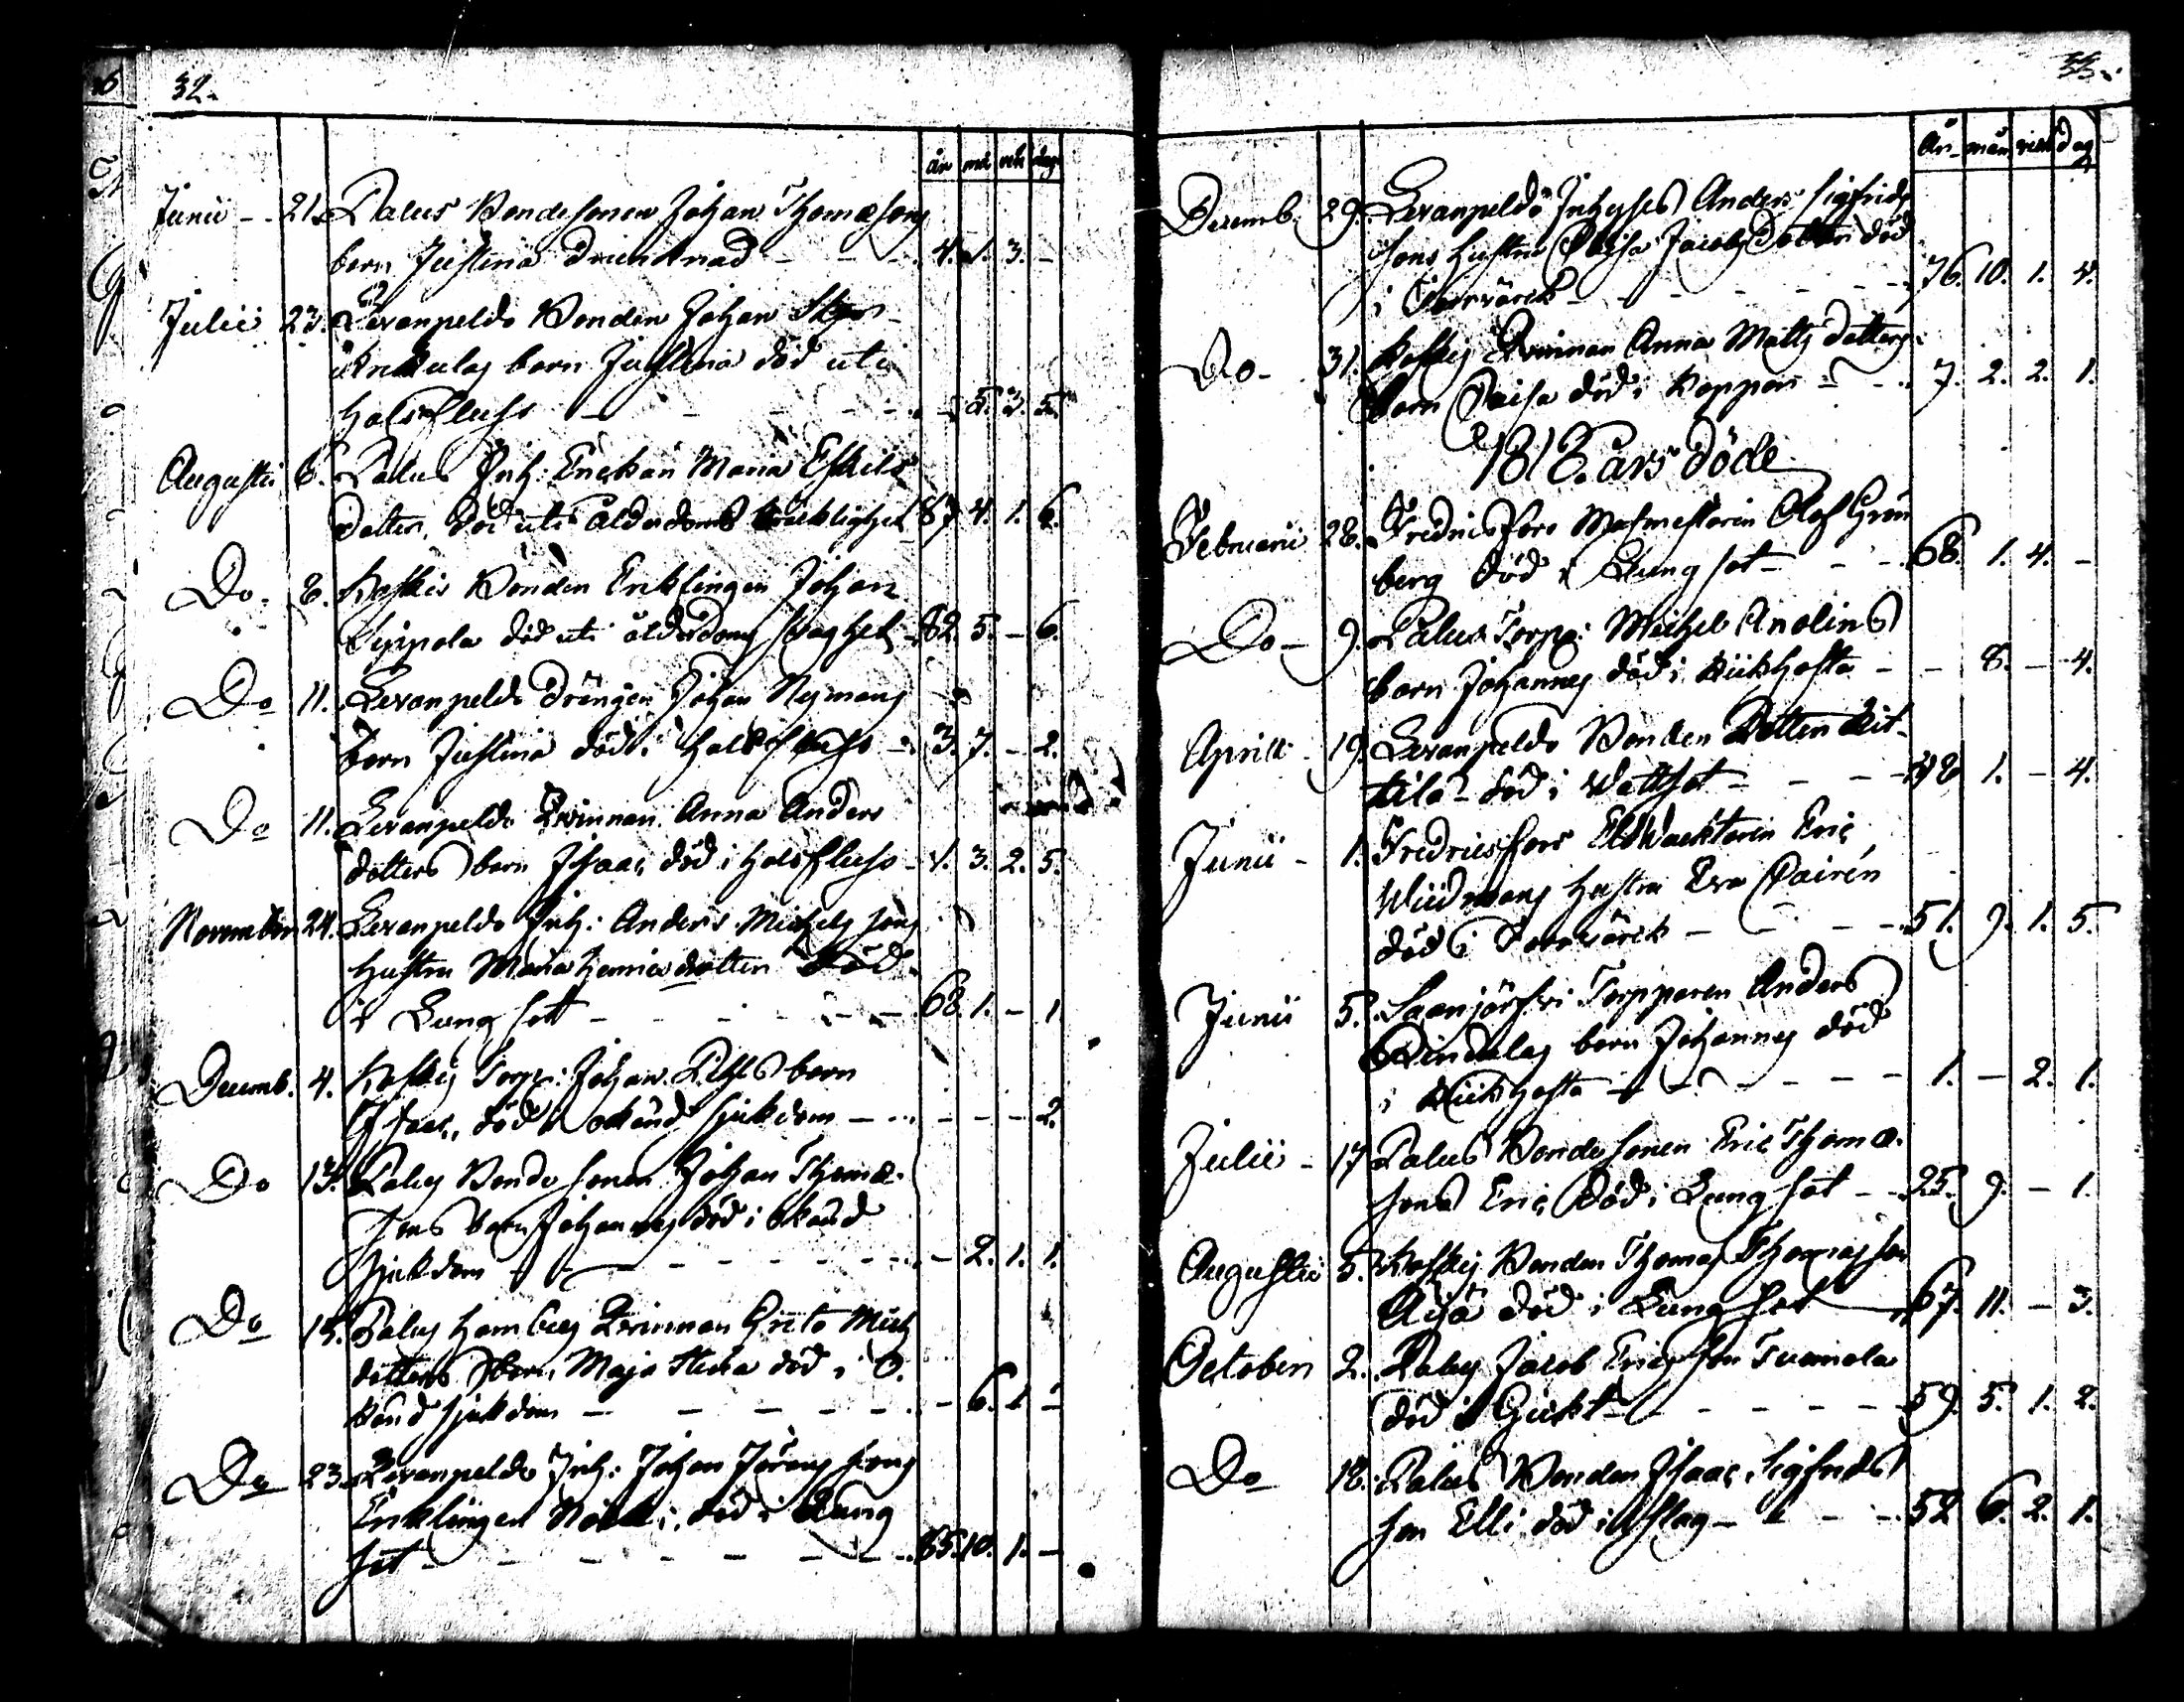 32.
år må vek dag
Junii - 21. Palus Bondesonen Johan Thomæsons
barn Justina drunknad - - - 4. 1. 3. -
Julii 23. Levanpeldo Bonden Johan
barn Justina död uti
Halsfluss - - - - 5. 3. 5.
Augusti 6. Palus Inh: Enckan Maria Eskils
dotter, död uti ålderdoms bräcklighet 87 4. 1. 6.
Do. 8. Koskis Bonden Enklingen Johan
Seppola död uti ålderdoms svaghet 82. 5. - 6.
Do 11. Levanpeldo Drängen Johan Nymans
barn Justina död i halsfluss - 3. 7. - 2.
Do 11. Levanpeldo Qvinnan Anna Anders
dotters barn Isaac död i halsfluss - 1. 3. 2. 5.
November 24. Levanpeldo Inh: Anders Michels sons
hustru Maria Henricsdotter död
i Lungsot - - - - - 68. 1. - 1
Decemb. 4. Koskis Torp: Johan barn
Isaac, död i okänd sjukdom - - - - - 2.
Do 13. Palus Bonde sonen Johan Thomæ
sons barn Johannes död i okänd
sjukdom - - - - - - 2. 1. 1.
Do 15. Palus Qvinnan Greta Mich
dotters barn Maja Stina död i o
känd sjukdom - - - - - 6. 1 -
Do 23. Levanpeldo Inh: Johan Jörans sons
Enklingen död i Lung
sot - - - - - - 65. 10. 1. -
33.
År. mån vek dag
Decemb. 29. Levanpeldo Inhyses Anders Sigfrids
sons hustru Caisa Jacobs Dotter död
i Torrvärck - - - - - 76. 10. 1. 4.
Do - 31. Koskis Qvinnan Anna Matts dotters
barn Caisa död i Koppor - - 7. 2. 2. 1.
1818. års döde
Februarii 28. Fredricsfors Masmestaren Olof Grön
berg död i Lungsot - - 68. 1. 4. -
Do - 9. Palus Torp: Michel Anolins
barn Johannes död i Kikhosta - - 8. - 4.
Aprill 19. Levanpeldo Bonden
död i Wattsot - - - 48 1. - 4.
Junii - 1. Fredricsfors Eldwacktaren Eric
Wiidmans hustru Eva Cairén
död i Torrvärck - - - 51. 9. 1. 5.
Junii 5. Saanjärfvi Torpparen Anders
barn Johannes död
i Kikhosta - - - - - 1. - 2. 1.
Julii - 17 Palus Bonde sonen Eric Thomæ
sons Eric död i Lungsot - - 25. 9. - 1.
Augustii 5. Koskis Bonden Thomas Thomasson
Äijä död i Lungsot - 67. 11. - 3.
October 2. Palus Jacob Ericsson Tuomola
död i Gickt - - - - - 59. 5. 1. 2.
Do 18. Palus Bonden Isaac Sigfrids
son Elli död i slag - - - 52 6. 2. 1.